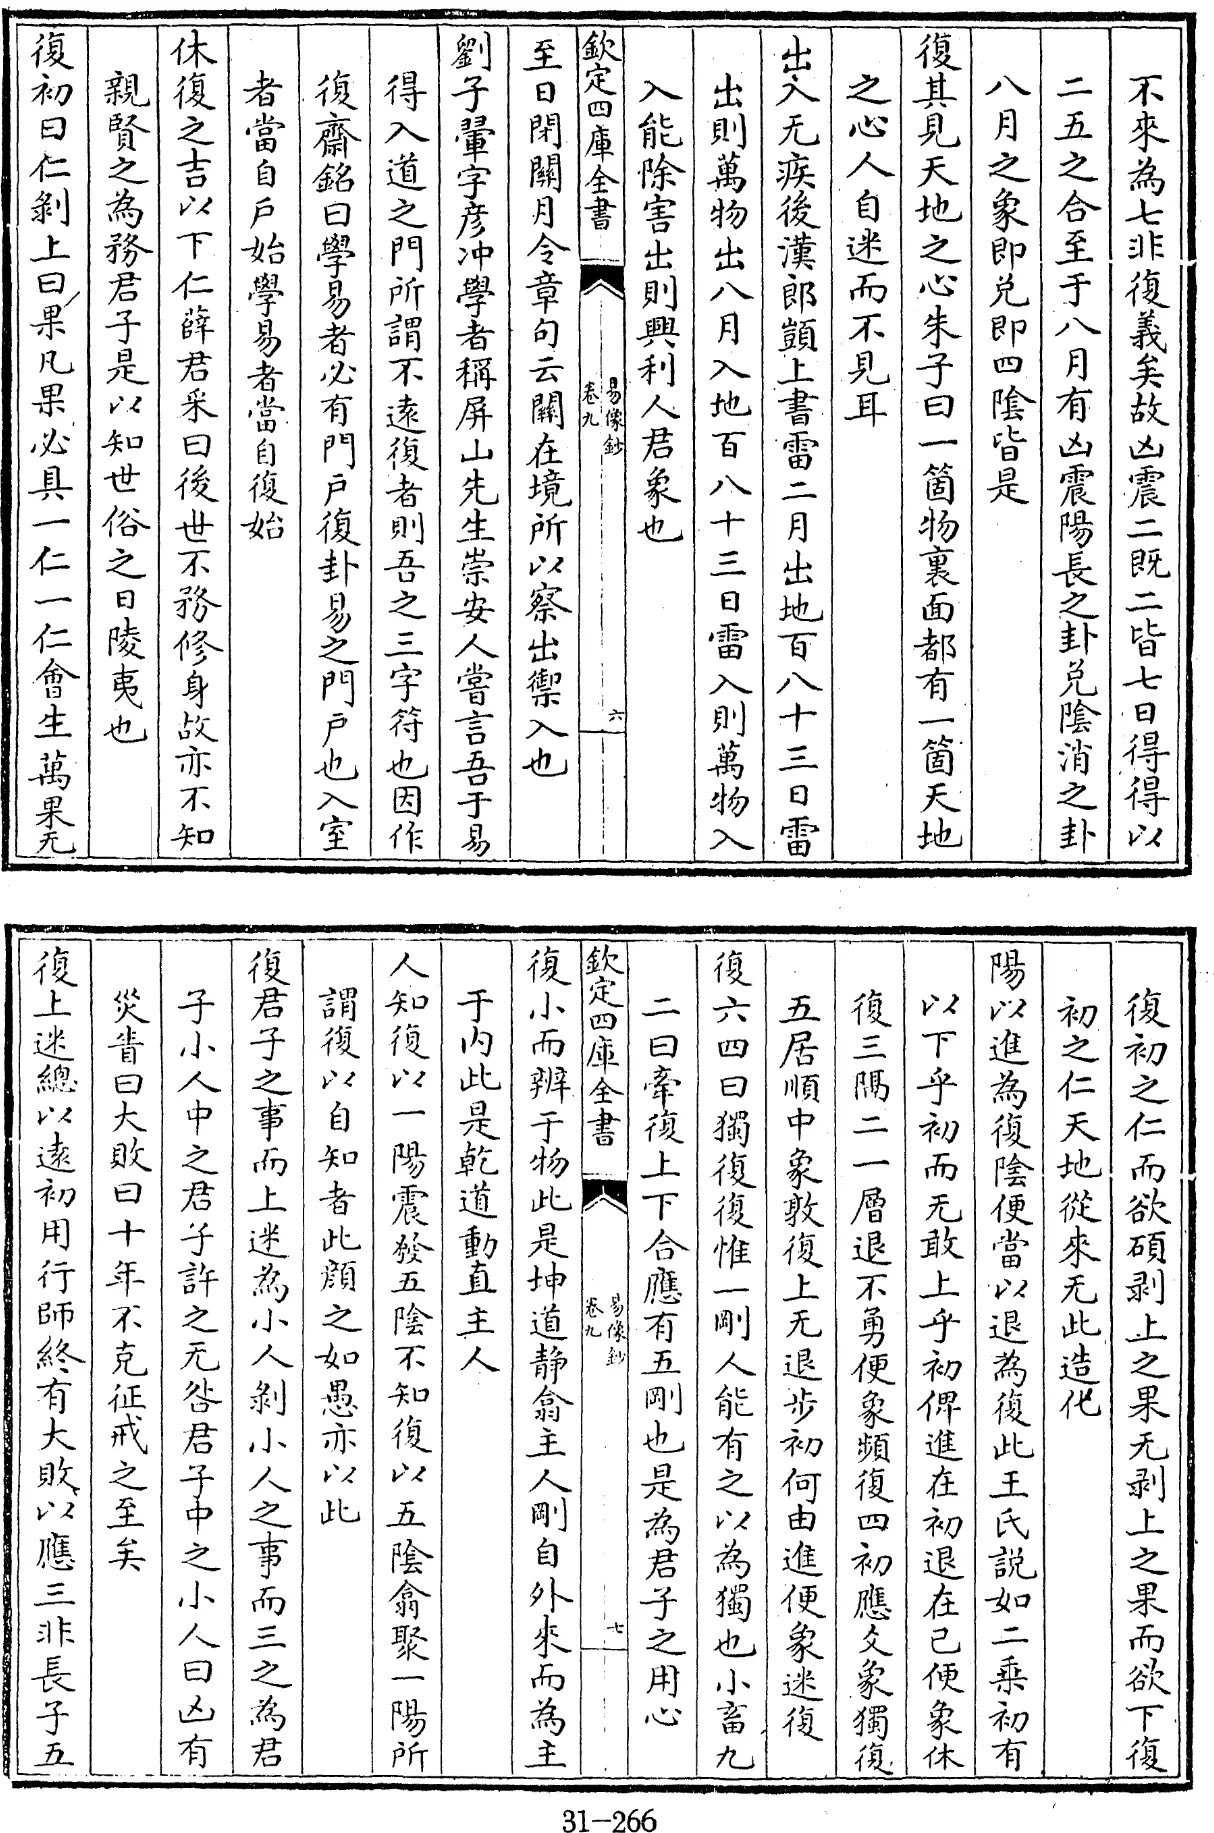 不來為七非復義矣故凶震二既二皆七日得得以
二五之合至于八月有凶震陽長之卦兑陰消之卦
八月之象即兑即四陰皆是
復其見天地之心朱子曰一箇物裏面都有一箇天地
之心人自迷而不見耳
出入无疾後漢郎顗上書雷二月出地百八十三日雷
出則萬物出八月入地百八十三日雷入則萬物入
入能除害出則興利人君象也
欽定四庫全書
易像鈔
卷九
六
至日閉關月令章句云關在境所以察出禦入也
劉子翬字彦冲學者稱屏山先生崇安人嘗言吾于易
得入道之門所謂不逺復者則吾之三字符也因作
復齋銘曰學易者必有門戸復卦易之門戸也入室
者當自戸始學易者當自復始
休復之吉以下仁薛君采曰後世不務修身故亦不知
親賢之為務君子是以知世俗之日陵夷也
復初曰仁剝上曰果凡果必具一仁一仁㑹生萬果无
復初之仁而欲碩剥上之果无剥上之果而欲下復
初之仁天地從來无此造化
陽以進為復陰便當以退為復此王氏說如二乘初有
以下乎初而无敢上乎初俾進在初退在己便象休
復三隔二一層退不勇便象頻復四初應爻象獨復
五居順中象敦復上无退歩初何由進便象迷復
復六四曰獨復復惟一剛人能有之以為獨也小畜九
二曰牽復上下合應有五剛也是為君子之用心
欽定四庫全書
易像鈔
卷九
七
復小而辨于物此是坤道静翕主人剛自外來而為主
于内此是乾道動直主人
人知復以一陽震發五陰不知復以五陰翕聚一陽所
謂復以自知者此顔之如愚亦以此
復君子之事而上迷為小人剝小人之事而三之為君
子小人中之君子許之无咎君子中之小人曰凶有
災眚曰大敗曰十年不克征戒之至矣
復上迷總以逺初用行師終有大敗以應三非長子五
31-266